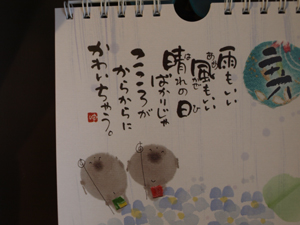 雨もいい
風もいい
晴れの日
ばかりじゃ
こころが
からからに
かわいちゃう。